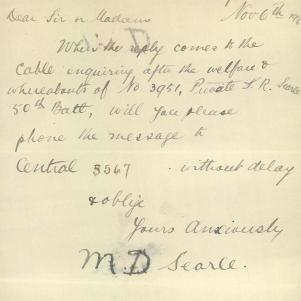 Dear Sir or Madam Nov 6th 1916
When the reply comes to the
cable enquiring after the welfare &
whereabouts of No 3951, Private S. R. Searle
50th Batt, will you please
phone the message to
Central 5567 without delay
& oblige
Yours Anxiously
M. D Searle.